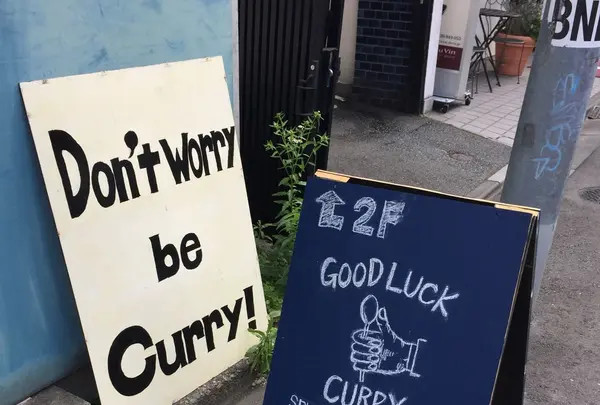 Don't Worry
be
Curry!
2F
GOOD LUCK
CURRY
BNE